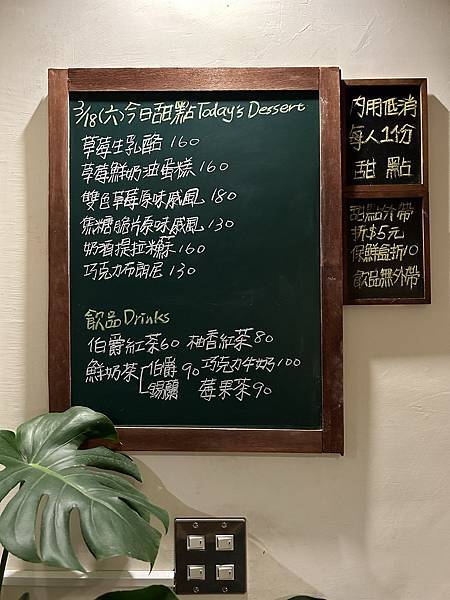 3/18(六)今日甜點Today's Dessert
草莓生乳酪 160
草莓鮮奶油蛋糕 160
雙色草莓原味戚風 180
焦糖脆片原味戚風 130
奶酒提拉米蘇 160
巧克力布朗尼 130
飲品Drinks
伯爵紅茶60 柚香紅茶80
鮮奶茶[伯爵 90 巧克力牛奶100
錫蘭 莓果茶90
內用低消
每人1份
甜點
甜點外帶
折$5元
保鮮盒折10
飲品無外帶